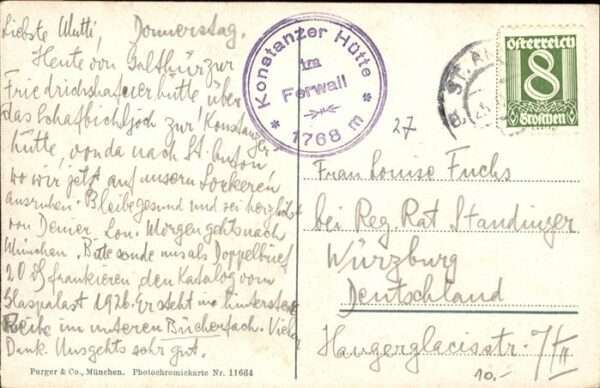 Liebste Mutti, Donnerstag.
Heute von Galthür zur
Friedrichshafenerhütte über
das Schafbichljoch zur Konstanzer
hütte, von da nach St. Anton,
wo wir jetzt auf unsern Lorbeeren
ausruhen. Bleibe gesund und sei herzlichst
von Deiner Lou. Morgen gehts nach
München. Bitte sende uns als Doppelbrief
20 frankieren den Katalog vom
Glaspalast 1926. Er steht
Reihe im unteren Bücherfach. Vielen
Dank. Uns gehts sehr gut.
Purger & Co., München. Photochromickarte Nr. 11664
Konstanzer Hütte
im
Ferwall
* 1768 m *
ST. A
27
Österreich
8
Groschen
Frau Louise Fuchs
bei Reg. Rat Standinger
Würzburg
Deutschland
Haugerglacisstr. 7/III
10.-